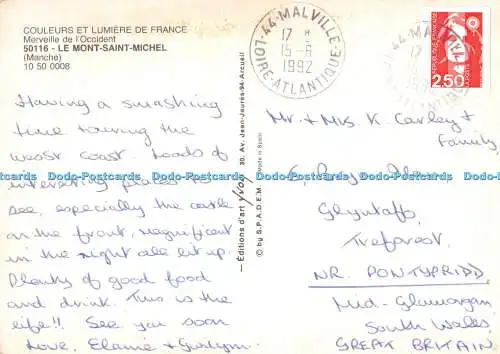 COULEURS ET LUMIÈRE DE FRANCE
Merveille de l'Occident
50116 - LE MONT-SAINT-MICHEL
(Manche)
10 50 0008
Having a smashing
time touring the
west coast. Loads of
interesting places to
see, especially the castle
on the front, magnificent
in the night all lit up.
Plenty of good food
and drink. This is the
life!! See you soon
Love, Elaine +
– Éditions d'art yvon 30, Av. Jean-Jaurès-94-Arcueil
© by S.P.A.D.E.M. Made in Spain
44-MALVILLE
17 H
15-6
1992
LOIRE-ATLANTIQUE
RÉPUBLIQUE FRANÇAISE
2,50
LA POSTE
Mr + Mrs K. Carley +
family
Glyntaff,
Treforest,
NR. PONTYPRIDD,
Mid-Glamorgan,
South Wales,
GREAT BRITAIN.
Dodo-Postcards Dodo-Postcards Dodo-Postcards Dodo-Postcards Dodo-Postcards Dodo-Postcards